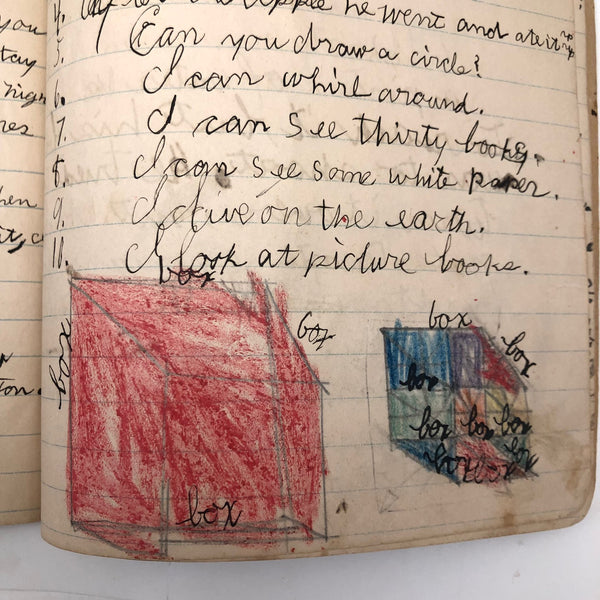 you
4. apple he went and ate it up
tay
5. Can you draw a circle?
6. I can whirl around.
7. I can see thirty books.
8. I can see some white paper.
hen
9. I live on the earth.
10. I look at picture books.
box
box
box
box
box
box
box
box
box
box
box
box
box